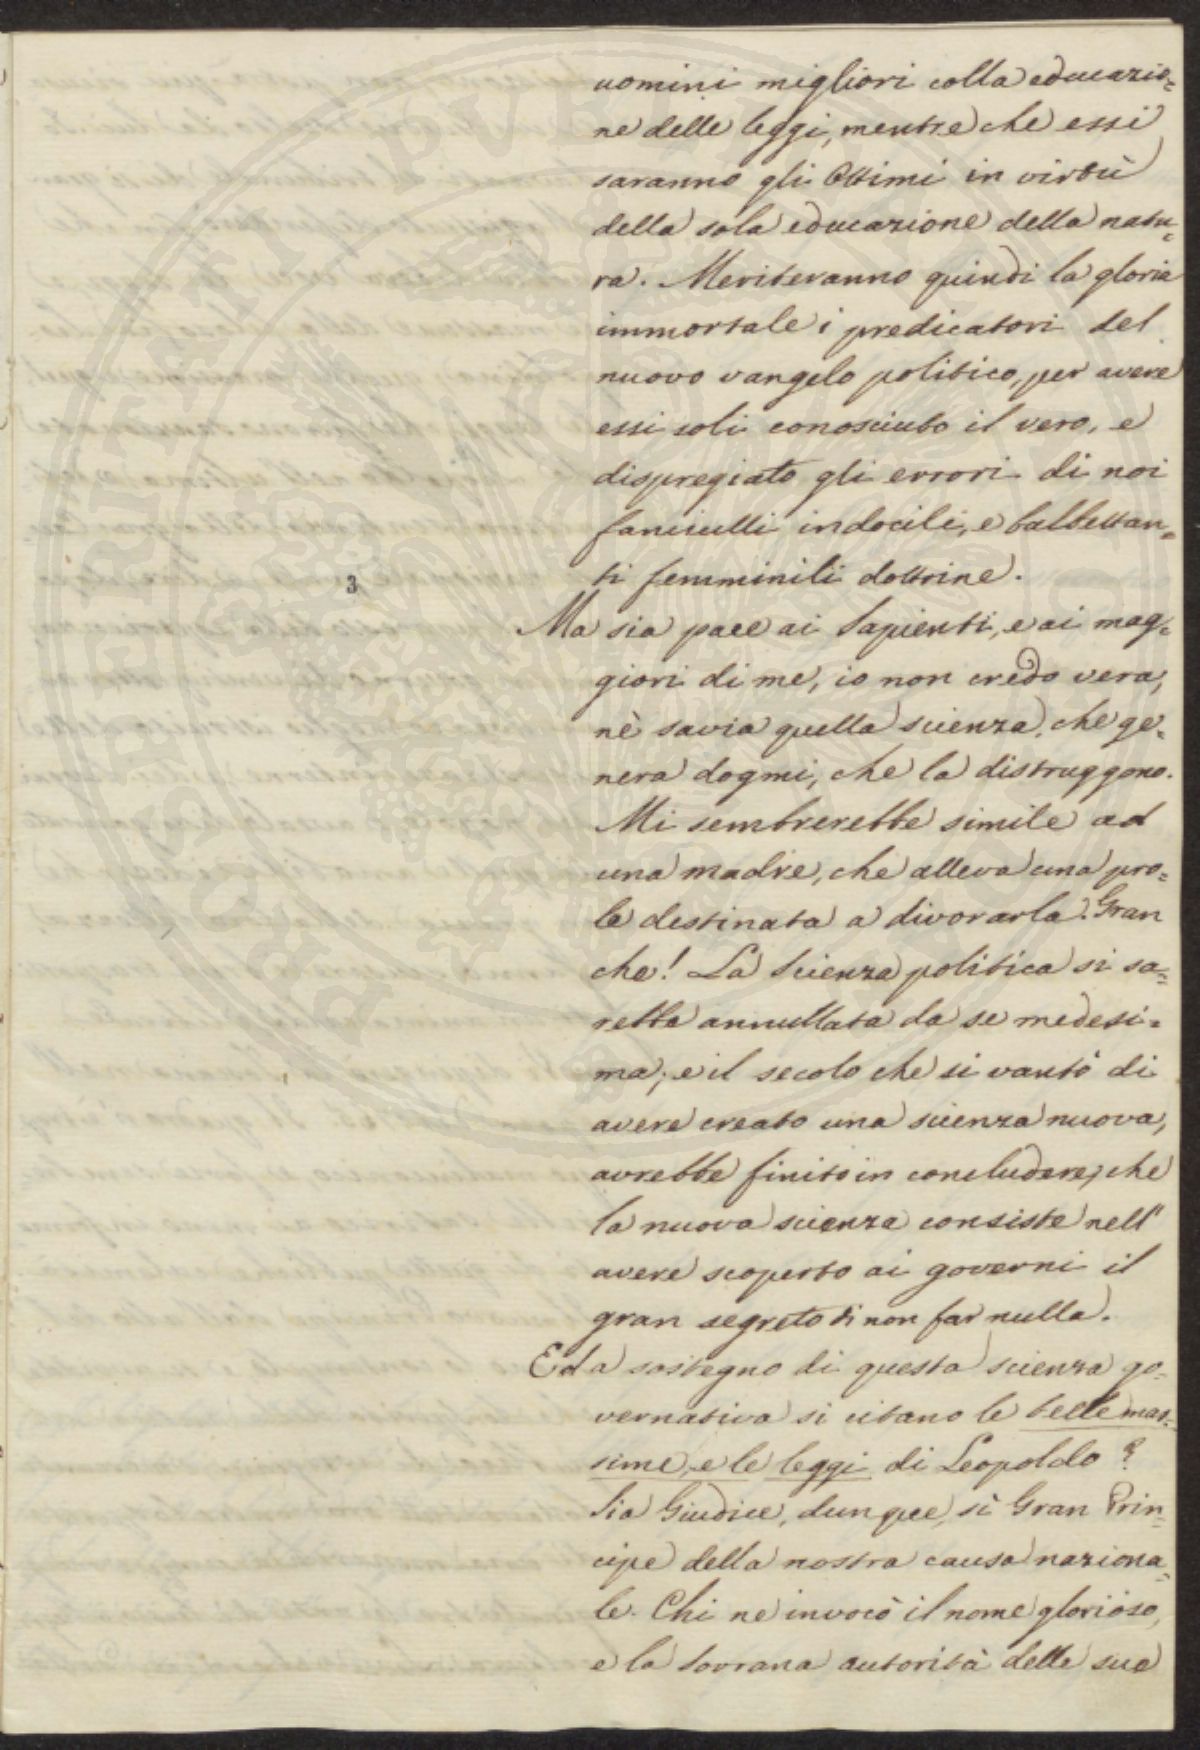 uomini migliori colla educazio=
ne delle leggi, mentre che essi
saranno gli Ottimi in virtù
della sola educazione della natu=
ra. Meriteranno quindi la gloria
immortale i predicatori del
nuovo vangelo politico, per avere
essi soli conosciuto il vero, e
dispregiato gli errori di noi
fanciulli indocili, e balbettan=
ti femminili dottrine.
3
Ma sia pace ai Sapienti, e ai mag=
giori di me, io non credo vera,
nè savia quella scienza, che ge=
nera dogmi, che la distruggono.
Mi sembrerebbe simile ad
una madre, che alleva una pro=
le destinata a divorarla. Gran
che! La Scienza politica si sa=
rebbe annullata da se medesi=
ma; e il secolo che si vantò di
avere creato una scienza nuova,
avrebbe finito in concludere, che
la nuova scienza consiste nell'
avere scoperto ai governi il
gran segreto di non far nulla.
Ed a sostegno di questa scienza go=
vernativa si citano le belle mas=
sime, e le leggi di Leopoldo?
Sia Giudice, dunque, sì Gran Prin=
cipe della nostra causa naziona=
le. Chi ne invocò il nome glorioso,
e la Sovrana autorità delle sue